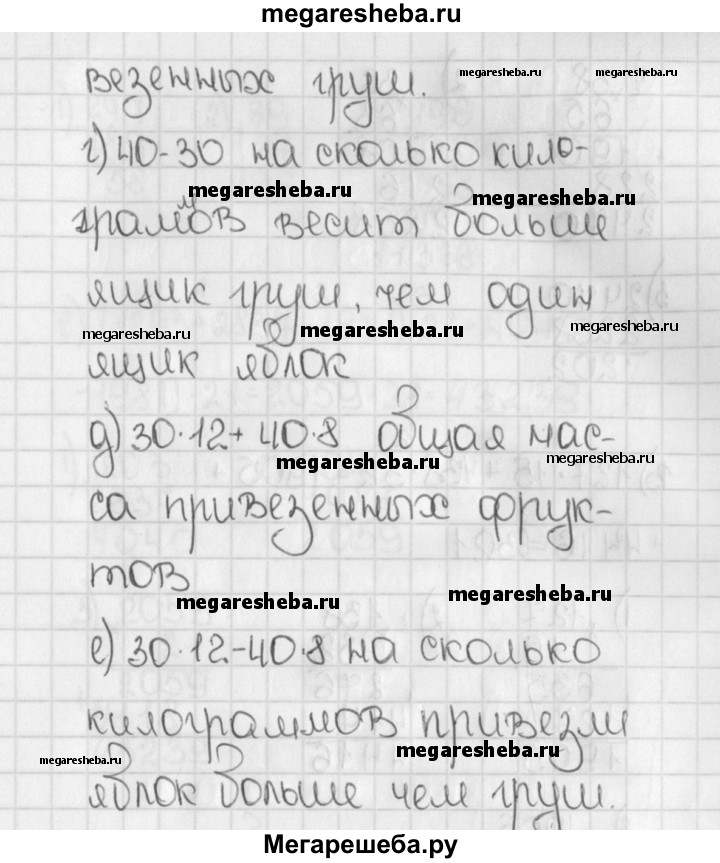 megaresheba.ru
везенных груш.
megaresheba.ru megaresheba.ru
г) 40-30 на сколько кило-
megaresheba.ru
megaresheba.ru
граммов весит больше
ящик груш, чем один
megaresheba.ru megaresheba.ru megaresheba.ru
ящик яблок
д) 30·12+ 40·8 общая мас-
megaresheba.ru megaresheba.ru
са привезенных фрук-
тов
megaresheba.ru megaresheba.ru
е) 30·12-40·8 на сколько
килограммов привезли
megaresheba.ru megaresheba.ru
яблок больше чем груш.
Мегарешеба.ру